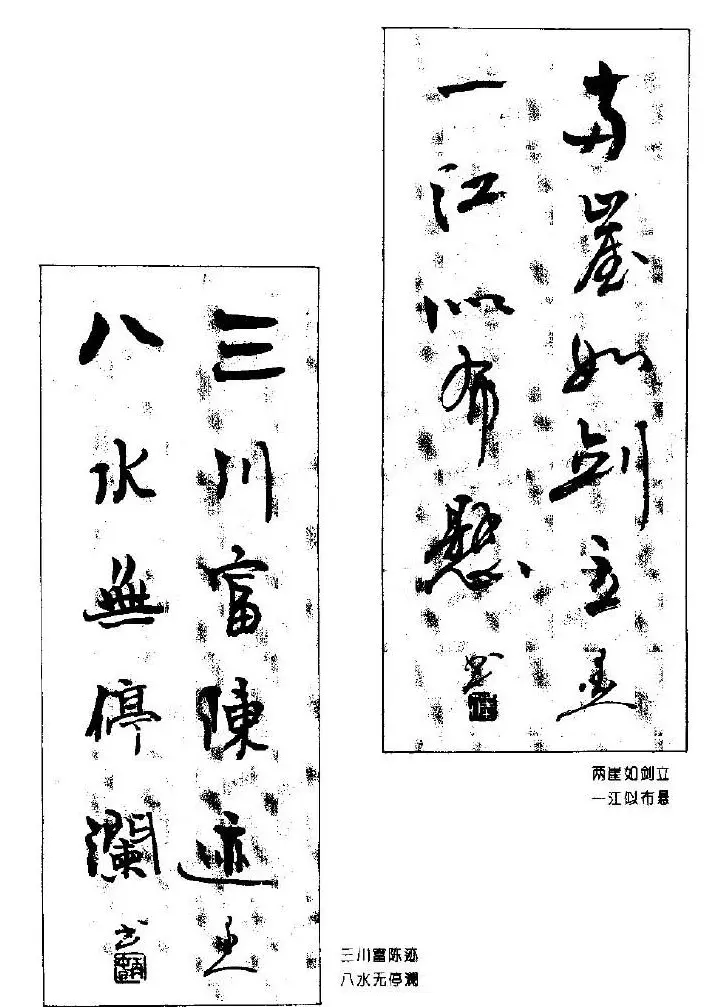 两崖如剑立
一江似布悬
书
两崖如剑立
一江似布悬
三川富陳迹
八水無停瀾
书
三川富陈迹
八水无停澜